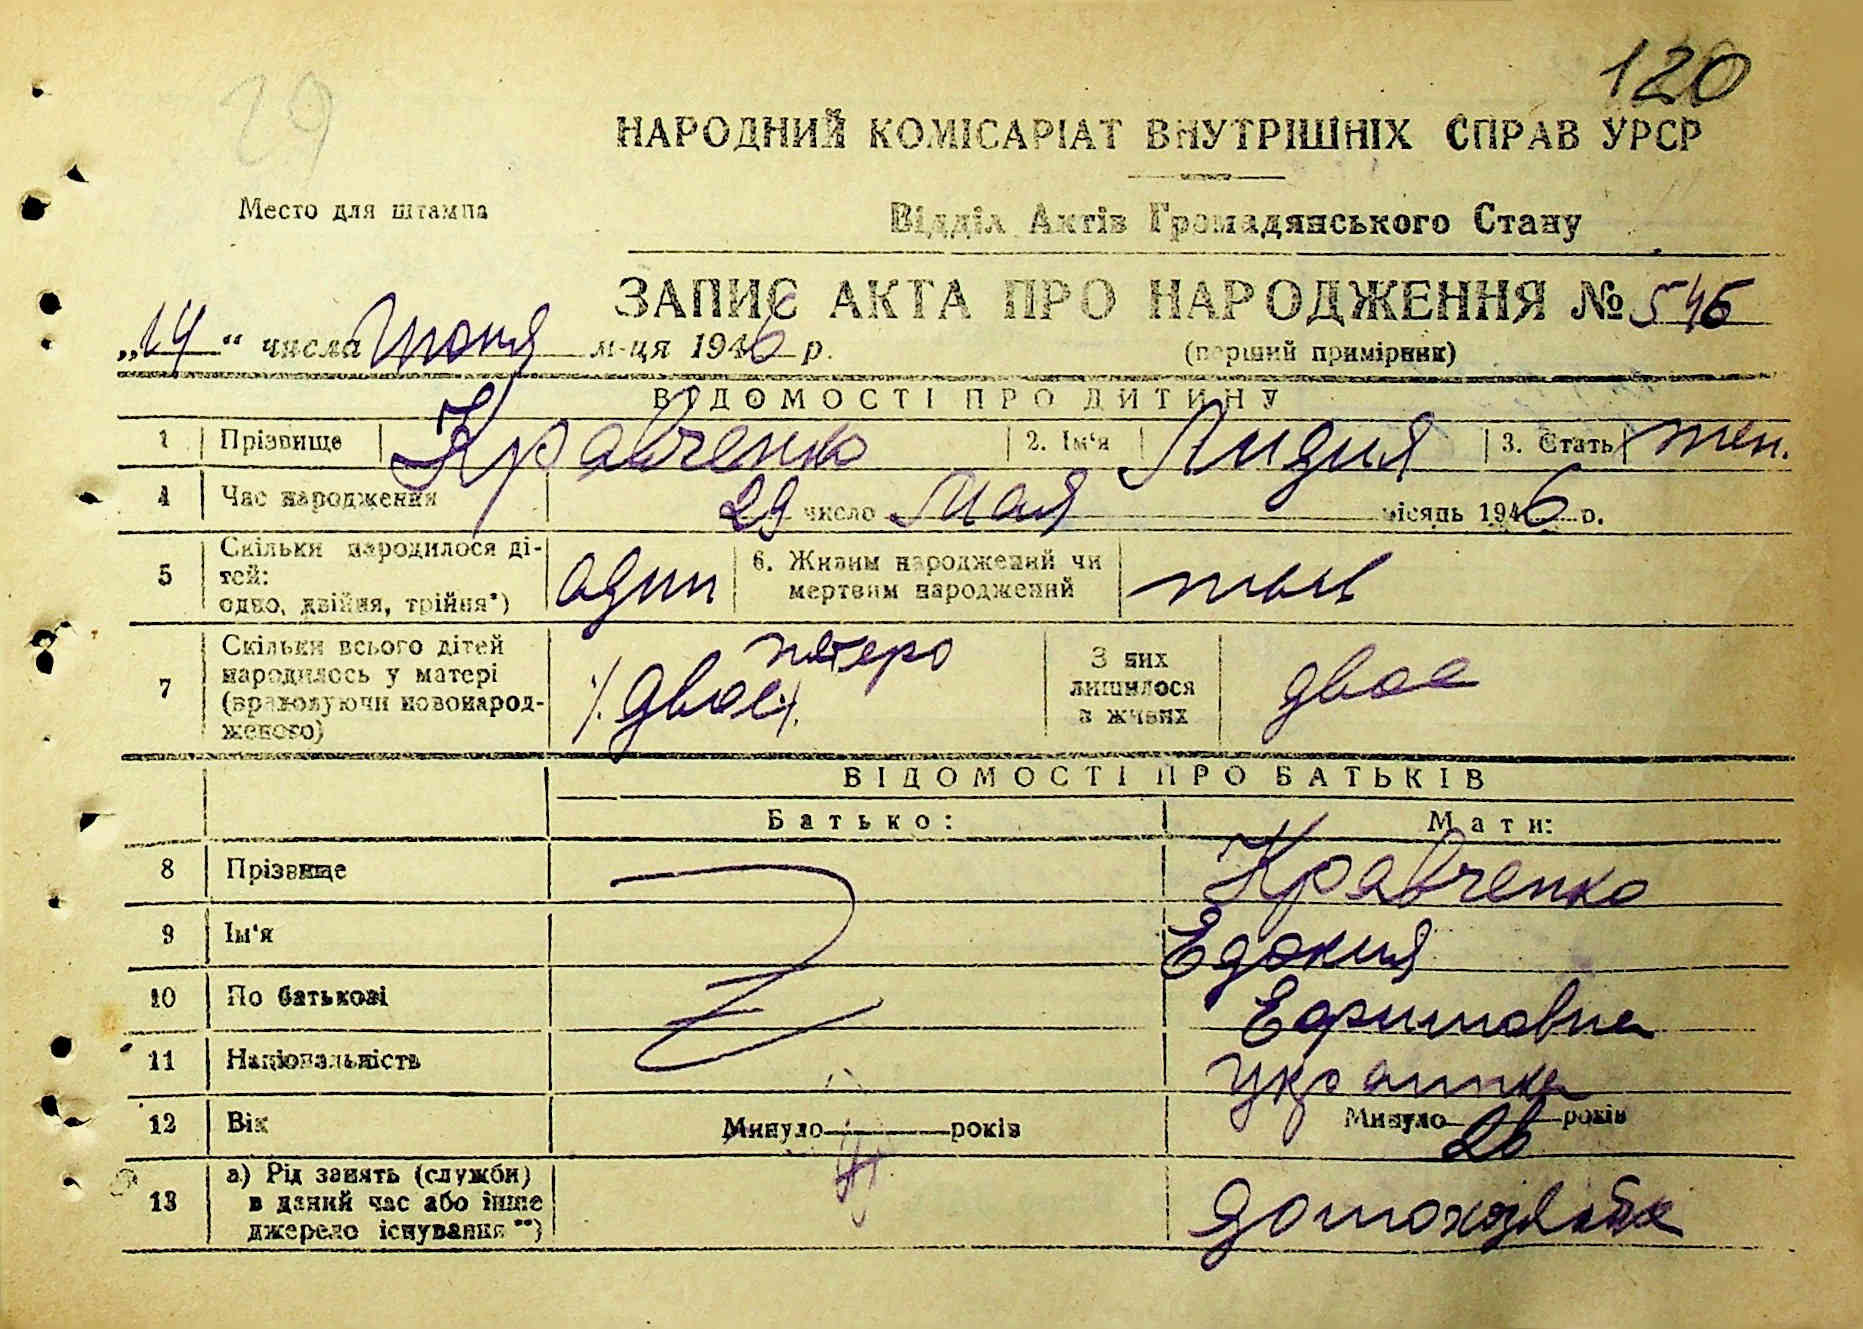 120
29
НАРОДНИЙ КОМІСАРІАТ ВНУТРІШНІХ СПРАВ УРСР
Место для штампа
Відділ Актів Громадянського Стану
ЗАПИС АКТА ПРО НАРОДЖЕННЯ № 546
„14“ числа Июня м-ця 1946 р.
(перший примірник)
ВІДОМОСТІ ПРО ДИТИНУ
1 Прізвище Кравченко 2. Ім'я Лидия 3. Стать жен.
4 Час народження 29 число Мая місяць 1946 р.
5 Скільки народилося ді-
тей:
одно, двійня, трійня*) один
6. Живим народжений чи
мертвим народжений жив
7 Скільки всього дітей
народилось у матері
(враховуючи новонарод-
женого)
пятеро
/. двое ./.
З них
лишилося
в живих
двое
ВІДОМОСТІ ПРО БАТЬКІВ
Батько: Мати:
8 Прізвище Кравченко
9 Ім'я Едокия
10 По батькові Ефимовна
11 Національність украинка
12 Вік Минуло років Минуло 26 років
13 а) Рід занять (служби)
в даний час або інше
джерело існування **)
домохозяйка